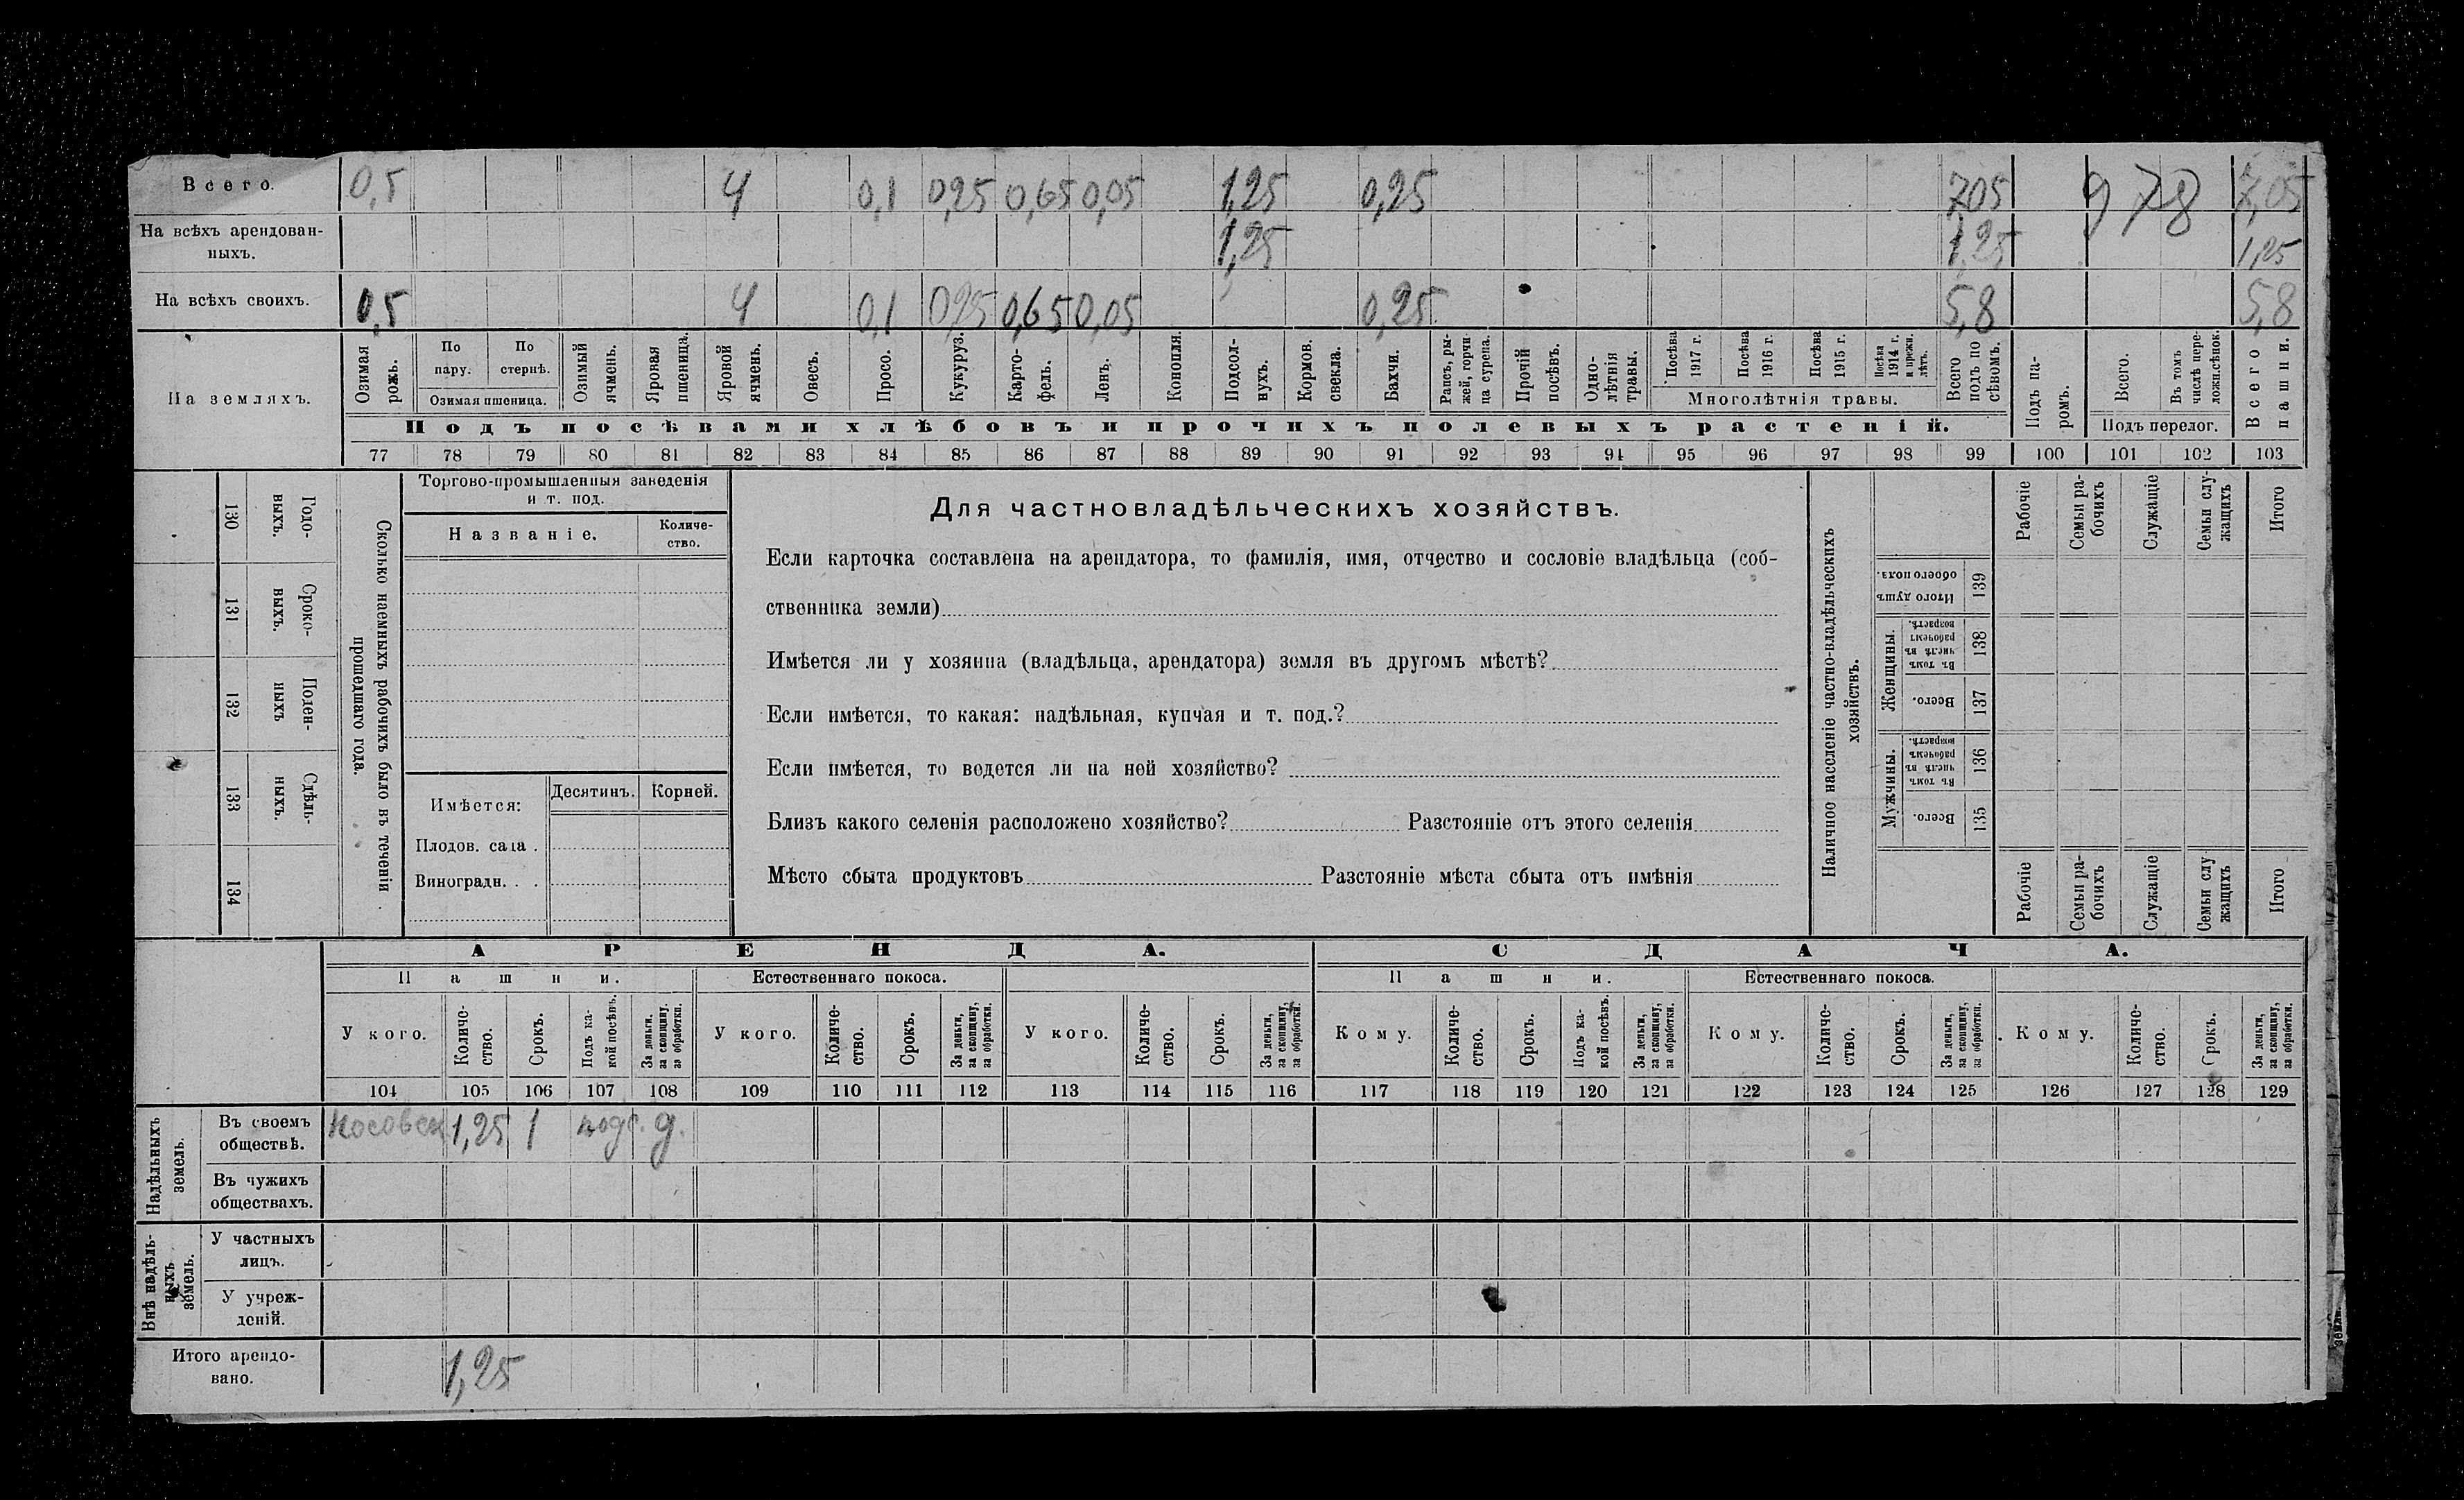 Всего. 0,5 4 0,1 0,25 0,65 0,05 1,25 0,25 7,05 978 7,05
На всѣхъ арендован-
ныхъ. 1,25 1,25 1,25
На всѣхъ своихъ. 0,5 4 0,1 0,25 0,65 0,05 0,25 5,8 5,8
На земляхъ.
Озимая рожь.
По пару.
По стернѣ.
Озимая пшеница.
Озимый ячмень.
Яровая пшеница.
Яровой ячмень.
Овесъ.
Просо.
Кукуруз.
Карто-
фель.
Ленъ.
Конопля.
Подсол-
нухъ.
Кормов. свекла.
Бахчи.
Рапсъ, ры-
жей, горчи-
ца сурепа.
Прочій посѣвъ.
Одно-
лѣтнія травы.
Посѣва 1917 г.
Посѣва 1916 г.
Посѣва 1915 г.
Посѣва 1914 г. и прежн. лѣтъ.
Многолѣтнія травы.
Всего подъ по
сѣвомъ.
Подъ па-
ромъ.
Всего.
Въ томъ числѣ пере-
ложн.сѣнок.
Подъ перелог.
Всего пашни.
Подъ посѣвами хлѣбовъ и прочихъ полевыхъ растеній.
77 78 79 80 81 82 83 84 85 86 87 88 89 90 91 92 93 94 95 96 97 98 99 100 101 102 103
130 Годо-
выхъ.
131 Сроко-
выхъ.
132 Поден-
ныхъ
133 Сдѣль-
ныхъ.
134
Сколько наемныхъ рабочихъ было въ теченіи
прошедшаго года.
Торгово-промышленныя заведенія
и т. под.
Названіе.
Количе-
ство.
Имѣется:
Десятинъ. Корней.
Плодов. сада .
Виноградн. . .
Для частновладѣльческихъ хозяйствъ.
Если карточка составлена на арендатора, то фамилія, имя, отчество и сословіе владѣльца (соб-
ственника земли)
Имѣется ли у хозяина (владѣльца, арендатора) земля въ другомъ мѣстѣ?
Если имѣется, то какая: надѣльная, купчая и т. под.?
Если имѣется, то ведется ли на ней хозяйство?
Близъ какого селенія расположено хозяйство? Разстояніе отъ этого селенія
Мѣсто сбыта продуктовъ Разстояніе мѣста сбыта отъ имѣнія
Наличное населеніе частно-владѣльческихъ
хозяйствъ.
Рабочіе
Семьи ра-
бочихъ
Служащіе
Семьи слу-
жащихъ
Итого
Итого душъ
обоего пола.
139
Женщины.
Въ томъ числѣ въ рабочемъ возрастѣ.
138
Всего.
137
Мужчины.
Въ томъ числѣ въ рабочемъ возрастѣ.
136
Всего.
135
Рабочіе
Семьи ра-
бочихъ
Служащіе
Семьи слу
жащихъ
Итого
АРЕНДА. СДАЧА.
Пашни. Естественнаго покоса. Пашни. Естественнаго покоса.
У кого.
Количе-
ство.
Срокъ.
Подъ ка-
кой посѣвъ.
За деньги,
за скопщину,
за обработки.
У кого.
Количе-
ство.
Срокъ.
За деньги,
за скопщину,
за обработки.
У кого.
Количе-
ство.
Срокъ.
За деньги,
за скопщину,
за обработки.
Кому.
Количе-
ство.
Срокъ.
Подъ ка-
кой посѣвъ.
За деньги,
за скопщину,
за обработки.
Кому.
Количе-
ство.
Срокъ.
За деньги,
за скопщину,
за обработки.
Кому.
Количе-
ство.
Срокъ.
За деньги,
за скопщину,
за обработки.
104 105 106 107 108 109 110 111 112 113 114 115 116 117 118 119 120 121 122 123 124 125 126 127 128 129
Надѣльныхъ
земель.
Въ своемъ
обществѣ. 1,25 1 подс. д.
Въ чужихъ
обществахъ.
Внѣ надѣль-
ныхъ
земель.
У частныхъ
лицъ.
У учреж-
деній.
Итого арендо-
вано. 1,25